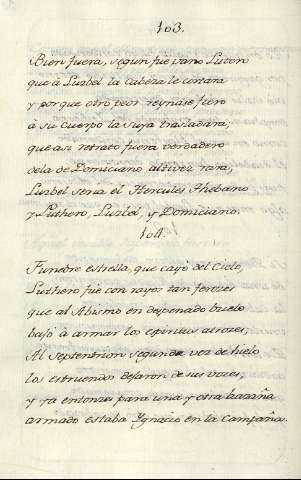 103.
Bien fuera, segun fue vano Lutero
que à Luzbel la Cabeza le cortara
y porque otro peor reynàse fiero
à su Cuerpo la suya trasladàra;
que asi retrato fuera verdadero
de la de Domiciano altivez rara,
Luzbel seria el Hercules thebano
y Luthero, Luzbel, y Domiciano.
104.
Funebre estrella, que cayò del Cielo,
Luthero fuè con rayos tan feroces
que al Abismo en despenado buelo
bajò à armar los espiritus atroces;
Al Septentrion segunda vez de hielo
los estruendos dejaron de sus vozes,
y ya entonzes para una y otra hazaña
armado estaba Ygnacio en la Campaña.